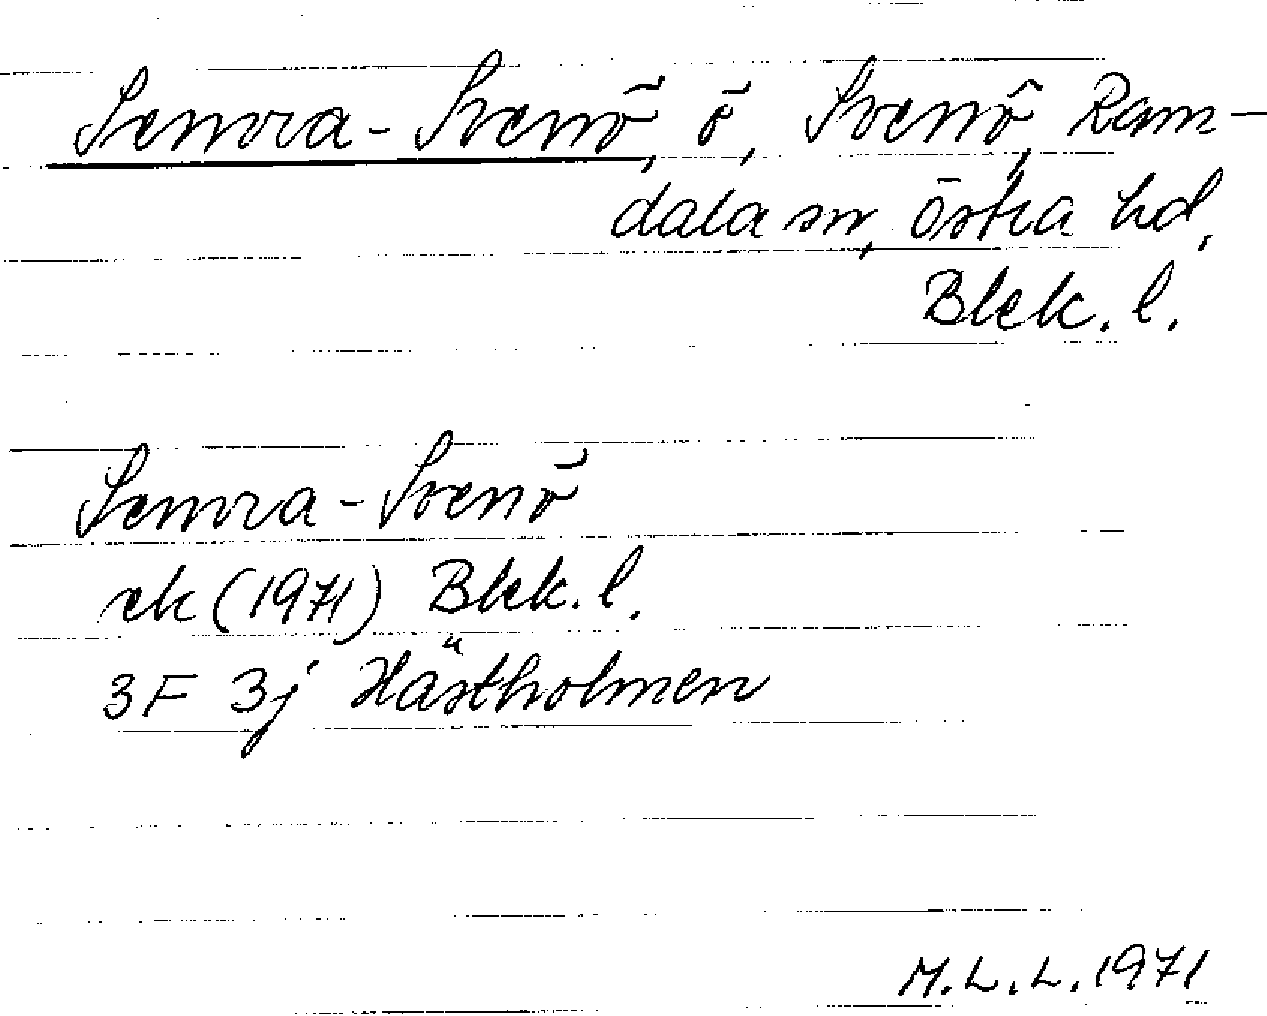 Senora-Svenö, ö, Svenö, Ram-
dala sn, Östra hd,
Blek. l.
Senora-Svenö
ek (1971) Blek. l.
3F 3j Hästholmen
M.L.L. 1971